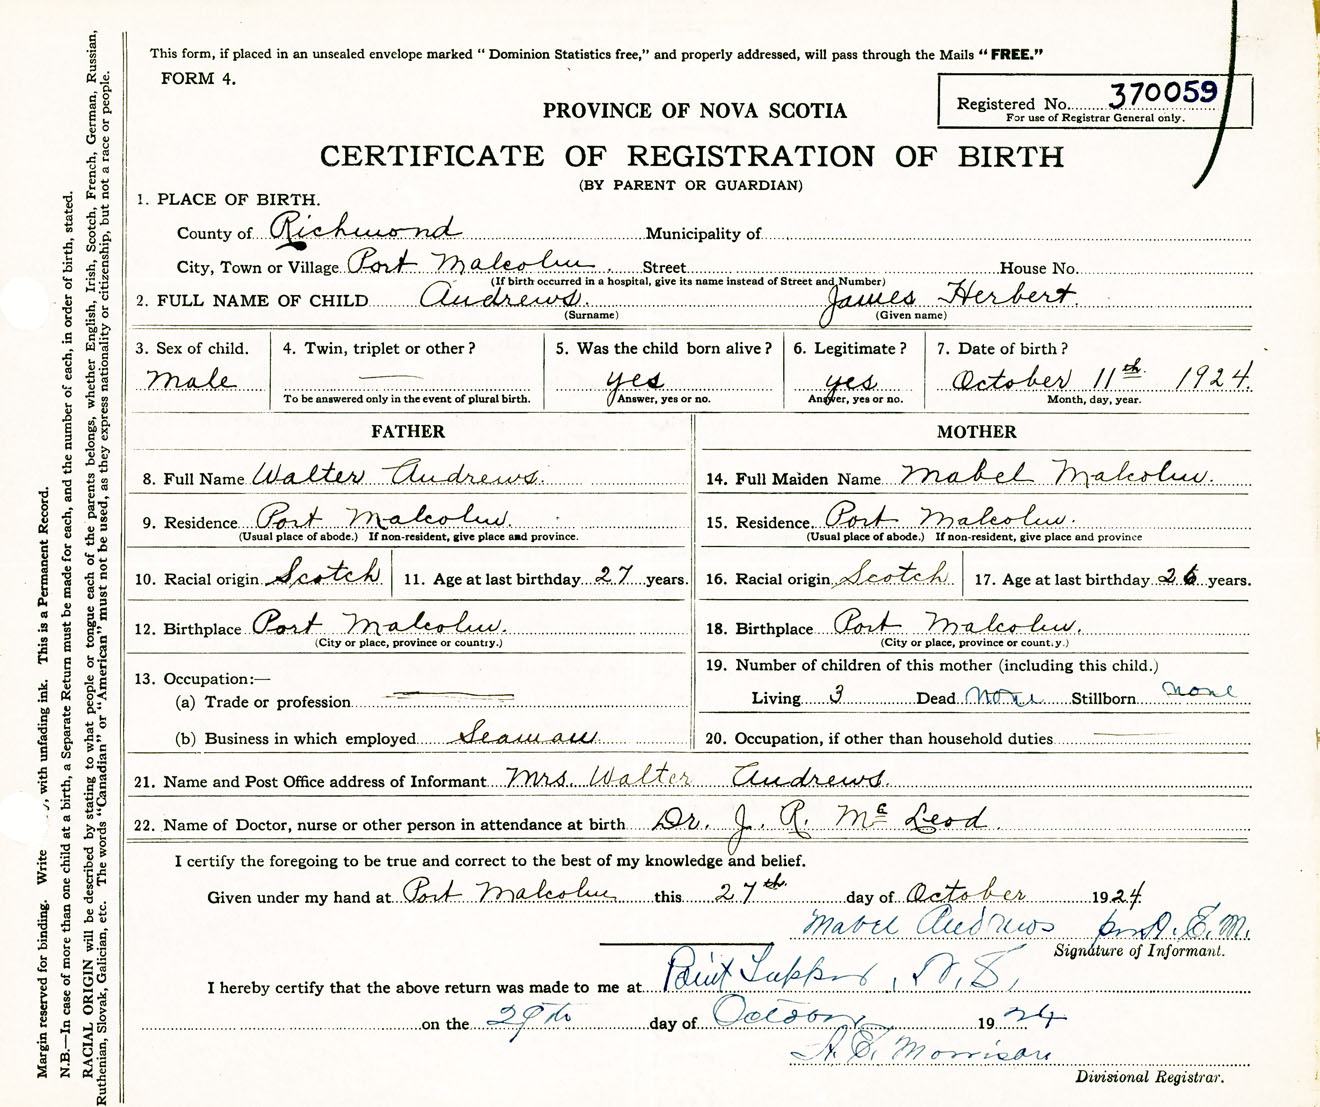 This form, if placed in an unsealed envelope marked “ Dominion Statistics free,” and properly addressed, will pass through the Mails “ FREE.”
FORM 4.
Registered No. 370059
For use of Registrar General only.
PROVINCE OF NOVA SCOTIA
CERTIFICATE OF REGISTRATION OF BIRTH
(BY PARENT OR GUARDIAN)
1. PLACE OF BIRTH.
County of Richmond Municipality of
City, Town or Village Port Malcolm. Street House No.
(If birth occurred in a hospital, give its name instead of Street and Number)
2. FULL NAME OF CHILD Andrews. James Herbert.
(Surname) (Given name)
3. Sex of child. 4. Twin, triplet or other ? 5. Was the child born alive ? 6. Legitimate ? 7. Date of birth ?
Male — yes yes October 11th 1924.
To be answered only in the event of plural birth. Answer, yes or no. Answer, yes or no. Month, day, year.
FATHER MOTHER
8. Full Name Walter Andrews. 14. Full Maiden Name Mabel Malcolm.
9. Residence Port Malcolm. 15. Residence Port Malcolm.
(Usual place of abode.) If non-resident, give place and province. (Usual place of abode.) If non-resident, give place and province
10. Racial origin Scotch 11. Age at last birthday 27 years. 16. Racial origin Scotch 17. Age at last birthday 26 years.
12. Birthplace Port Malcolm. 18. Birthplace Port Malcolm.
(City or place, province or country.) (City or place, province or country.)
19. Number of children of this mother (including this child.)
13. Occupation:—
(a) Trade or profession — Living 3 Dead None Stillborn none
(b) Business in which employed Seaman 20. Occupation, if other than household duties —
21. Name and Post Office address of Informant Mrs. Walter Andrews.
22. Name of Doctor, nurse or other person in attendance at birth Dr. J. R. McLeod.
I certify the foregoing to be true and correct to the best of my knowledge and belief.
Given under my hand at Port Malcolm this 27th. day of October 1924.
Mabel Andrews per A. E. M.
Signature of Informant.
I hereby certify that the above return was made to me at Point Tupper, N. S,
on the 29th day of October 1924
A. E. Morrison
Divisional Registrar.
Margin reserved for binding. Write with unfading ink. This is a Permanent Record.
N.B.—In case of more than one child at a birth, a Separate Return must be made for each, and the number of each, in order of birth, stated.
RACIAL ORIGIN will be described by stating to what people or tongue each of the parents belongs, whether English, Irish, Scotch, French, German, Russian,
Ruthenian, Slovak, Galician, etc. The words “Canadian” or “American” must not be used, as they express nationality or citizenship, but not a race or people.